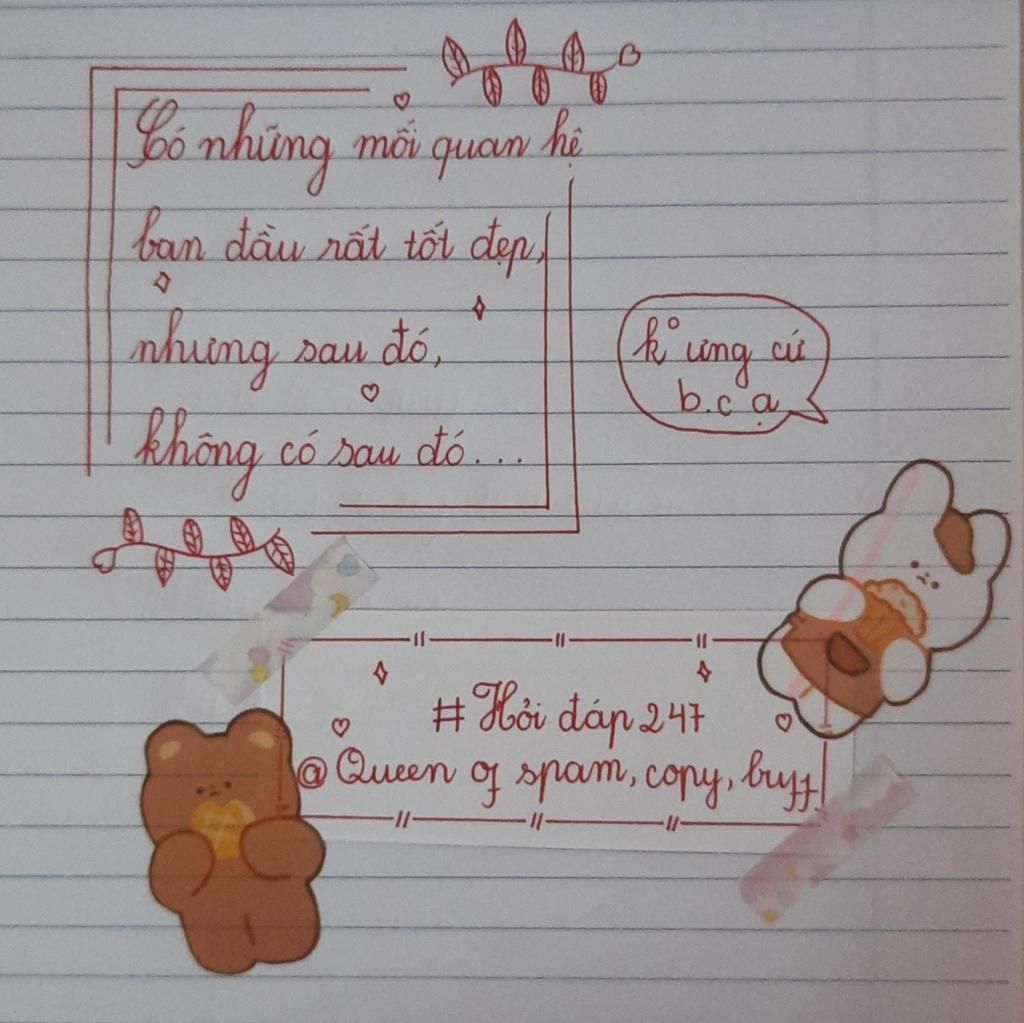 Có những mối quan hệ
ban đầu rất tốt đẹp,
nhưng sau đó,
không có sau đó...
k° ưng cứ
b.c ạ
# Hỏi đáp 247
@ Queen of spam, copy, buff